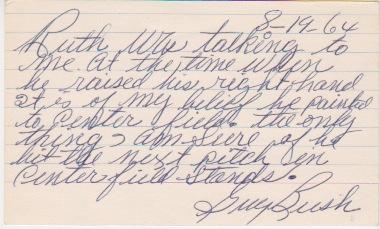 8-19-64
Ruth was talking to
me at the time when
he raised his right hand
It is of my belief he pointed
to center field the only
thing I am sure of he
hit the next pitch in
center field stands.
Guy Bush